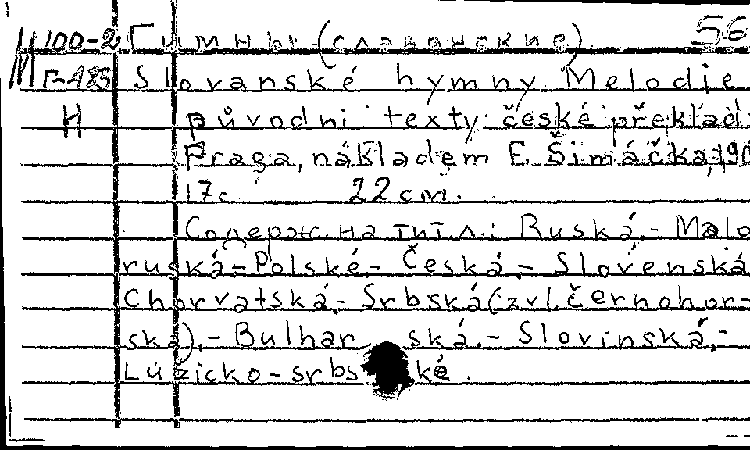 М 100-2 Гимны (славянские). 56
Г-483 Slovanské hymny. Melodie
H původní texty české překlad
Praga, nákladem F. Šimáčka, 190
17с. 22см.
Содерж. на тит. л.: Ruská.- Malo
ruská-Polské.- Česká.- Slovenská
Chorvatská.- Srbská (zvl. černohor-
ská).- Bulharská.- Slovinská.-
Lužicko-srbské.